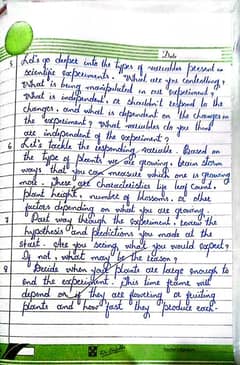 Date
5 Let's go deeper into the types of variables present in
scientific experiments. What are you controlling?
What is being manipulated in our experiment?
What is independent, or shouldn't respond to the
changes, and what is dependent on the changes in
the experiment? What variables do you think
are independent of the experiment?
6 Let's tackle the responding variable. Based on
the type of plants we are growing, brain storm
ways that you can measure which one is growing
most. These are characteristics like leaf count,
plant height, number of blossoms, or other
factors depending on what you are growing.
7 Part way through the experiment, revisit the
hypothesis and predictions you made at the
start. Are you seeing what you would expect?
If not, what may be the reason?
8 Decide when your plants are large enough to
end the experiment. This time frame will
depend on if they are flowering or fruiting
plants and how fast they produce each.